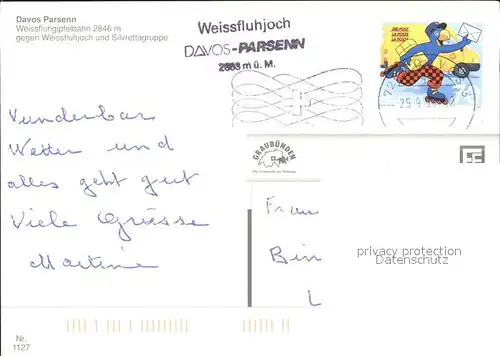 Davos Parsenn
Weissfluhgipfelbahn 2846 m
gegen Weissfluhjoch und Silvrettagruppe
Weissfluhjoch
DAVOS-PARSENN
2663 m ü. M.
DIE POST
LA POSTE
LA POSTA
GRAUBÜNDEN
Wunderbar
Wetter und
alles geht gut
Viele Grüsse
Martina
Frau
Bin
privacy protection
Datenschutz
Nr.
1127